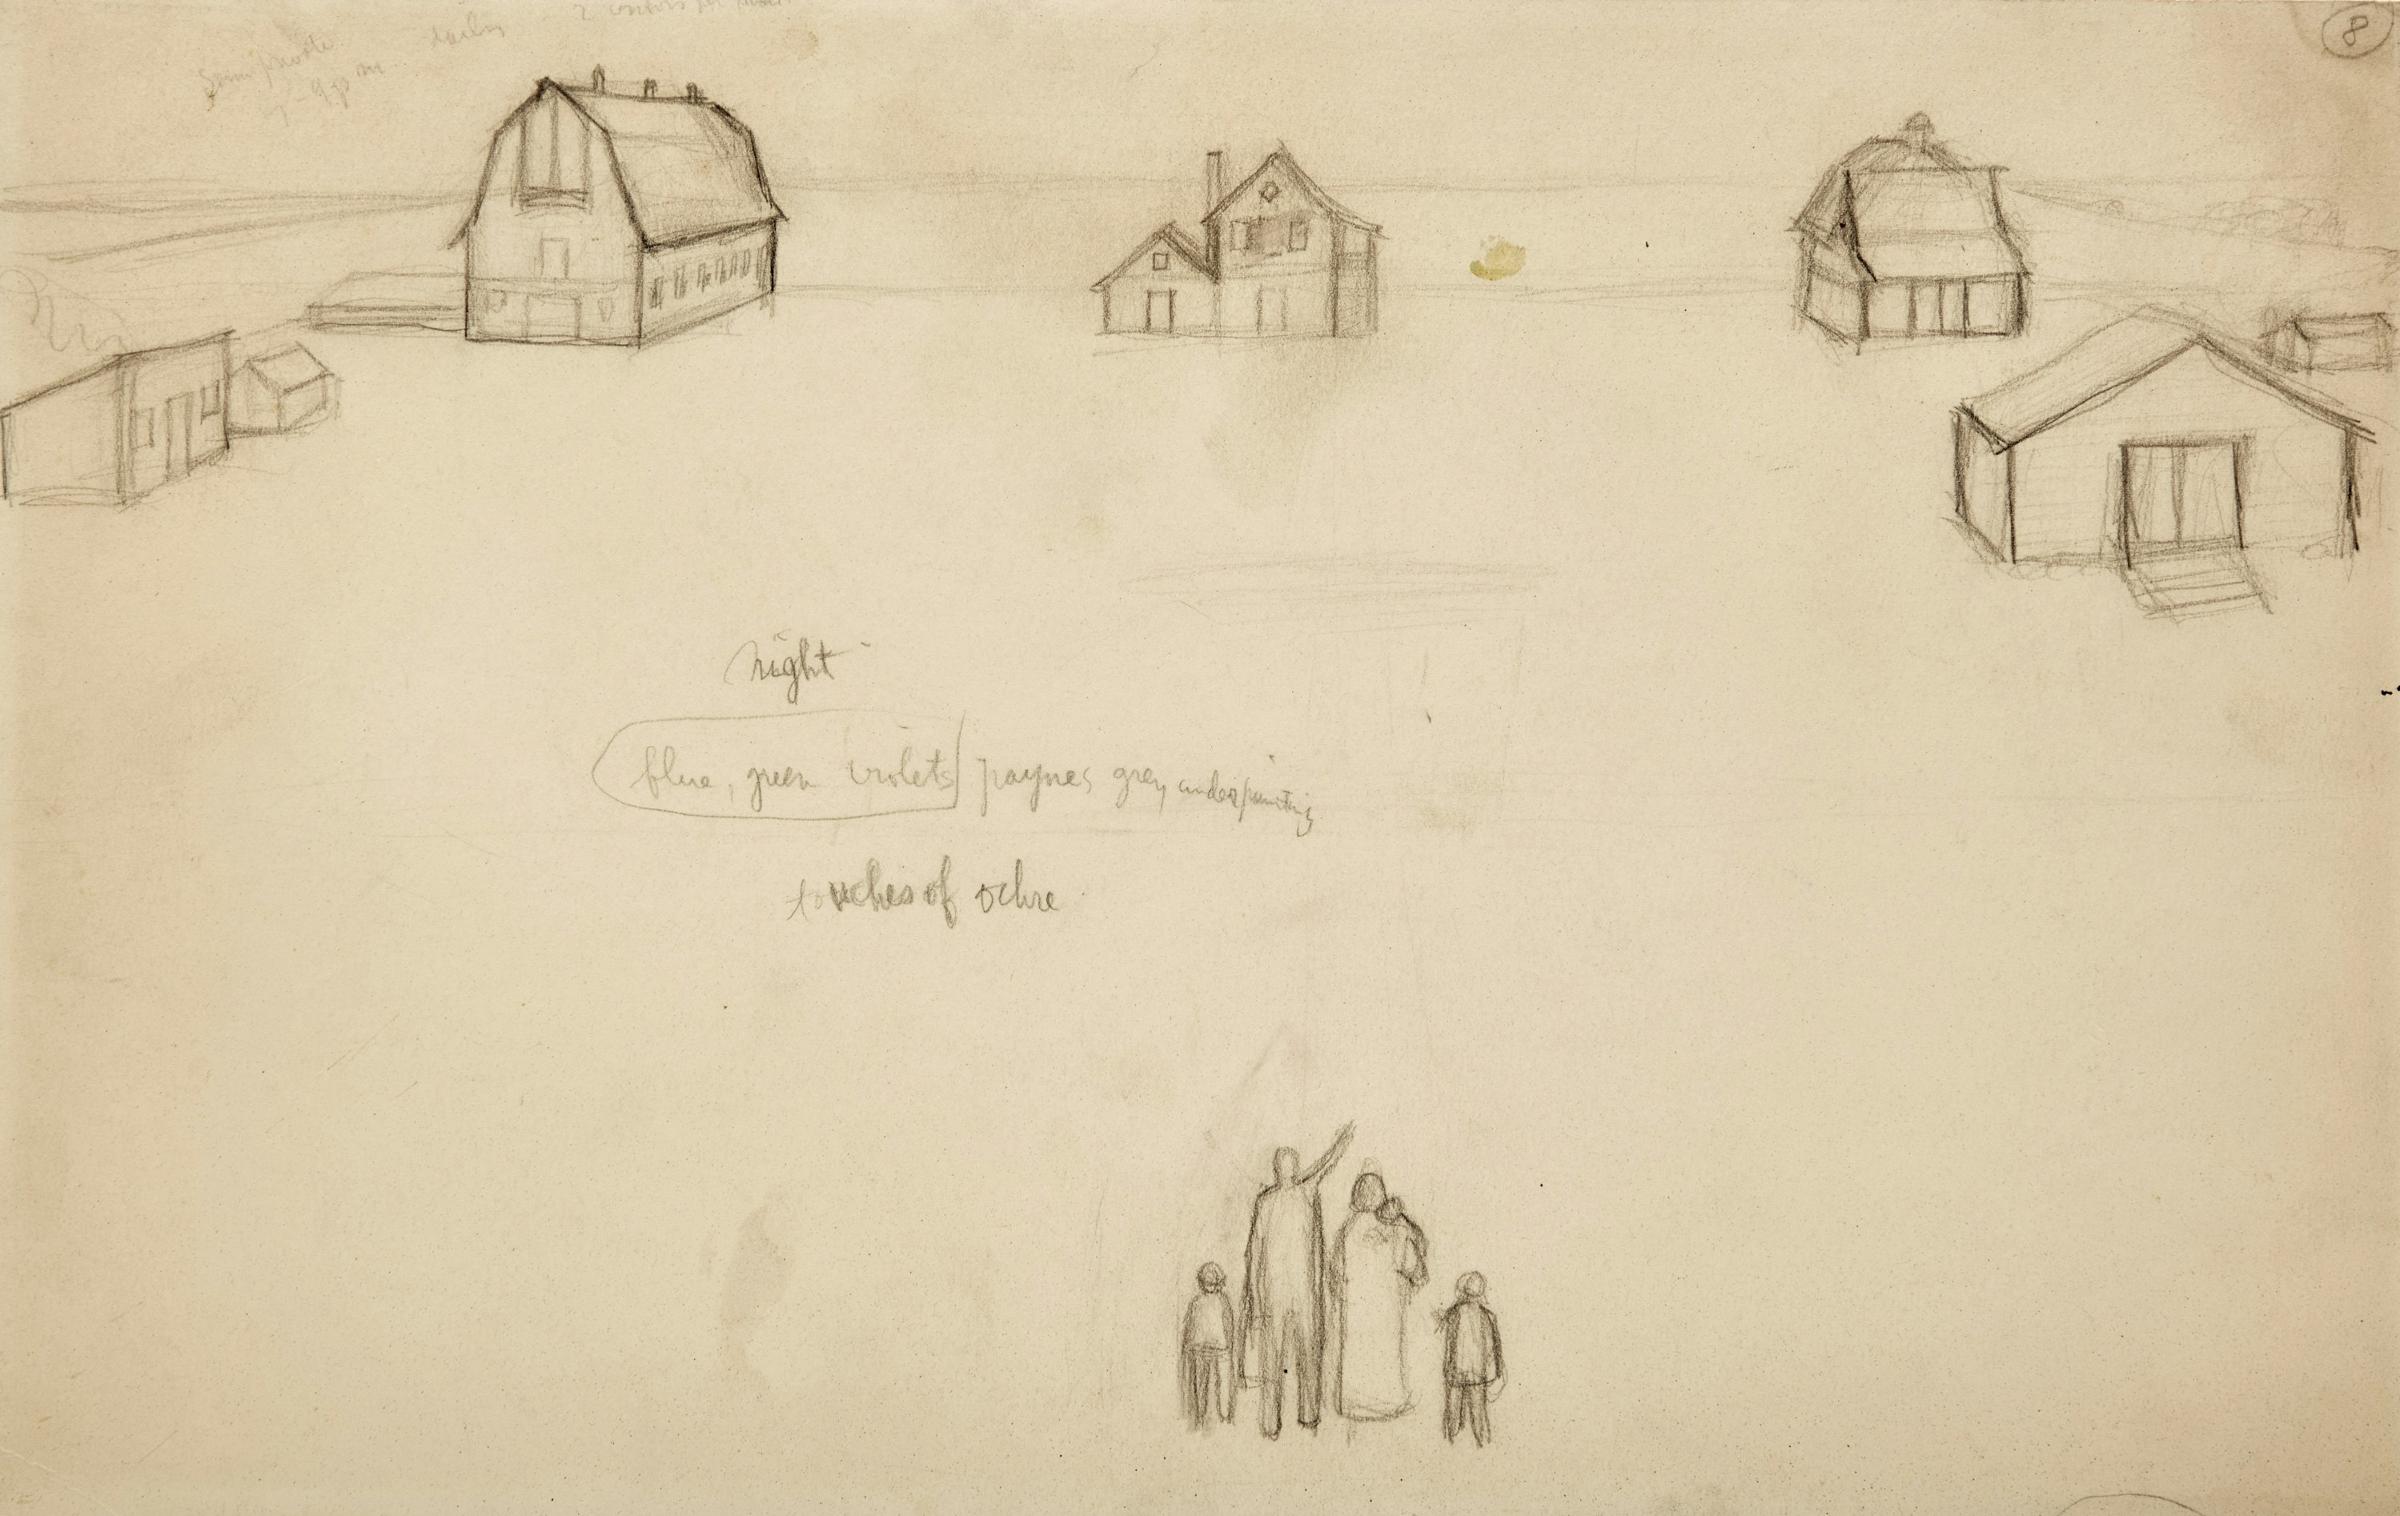 8
daily 2 visitors per
Semi private
7-9 pm
night
blue, green violets paynes grey underpainting
touches of ochre